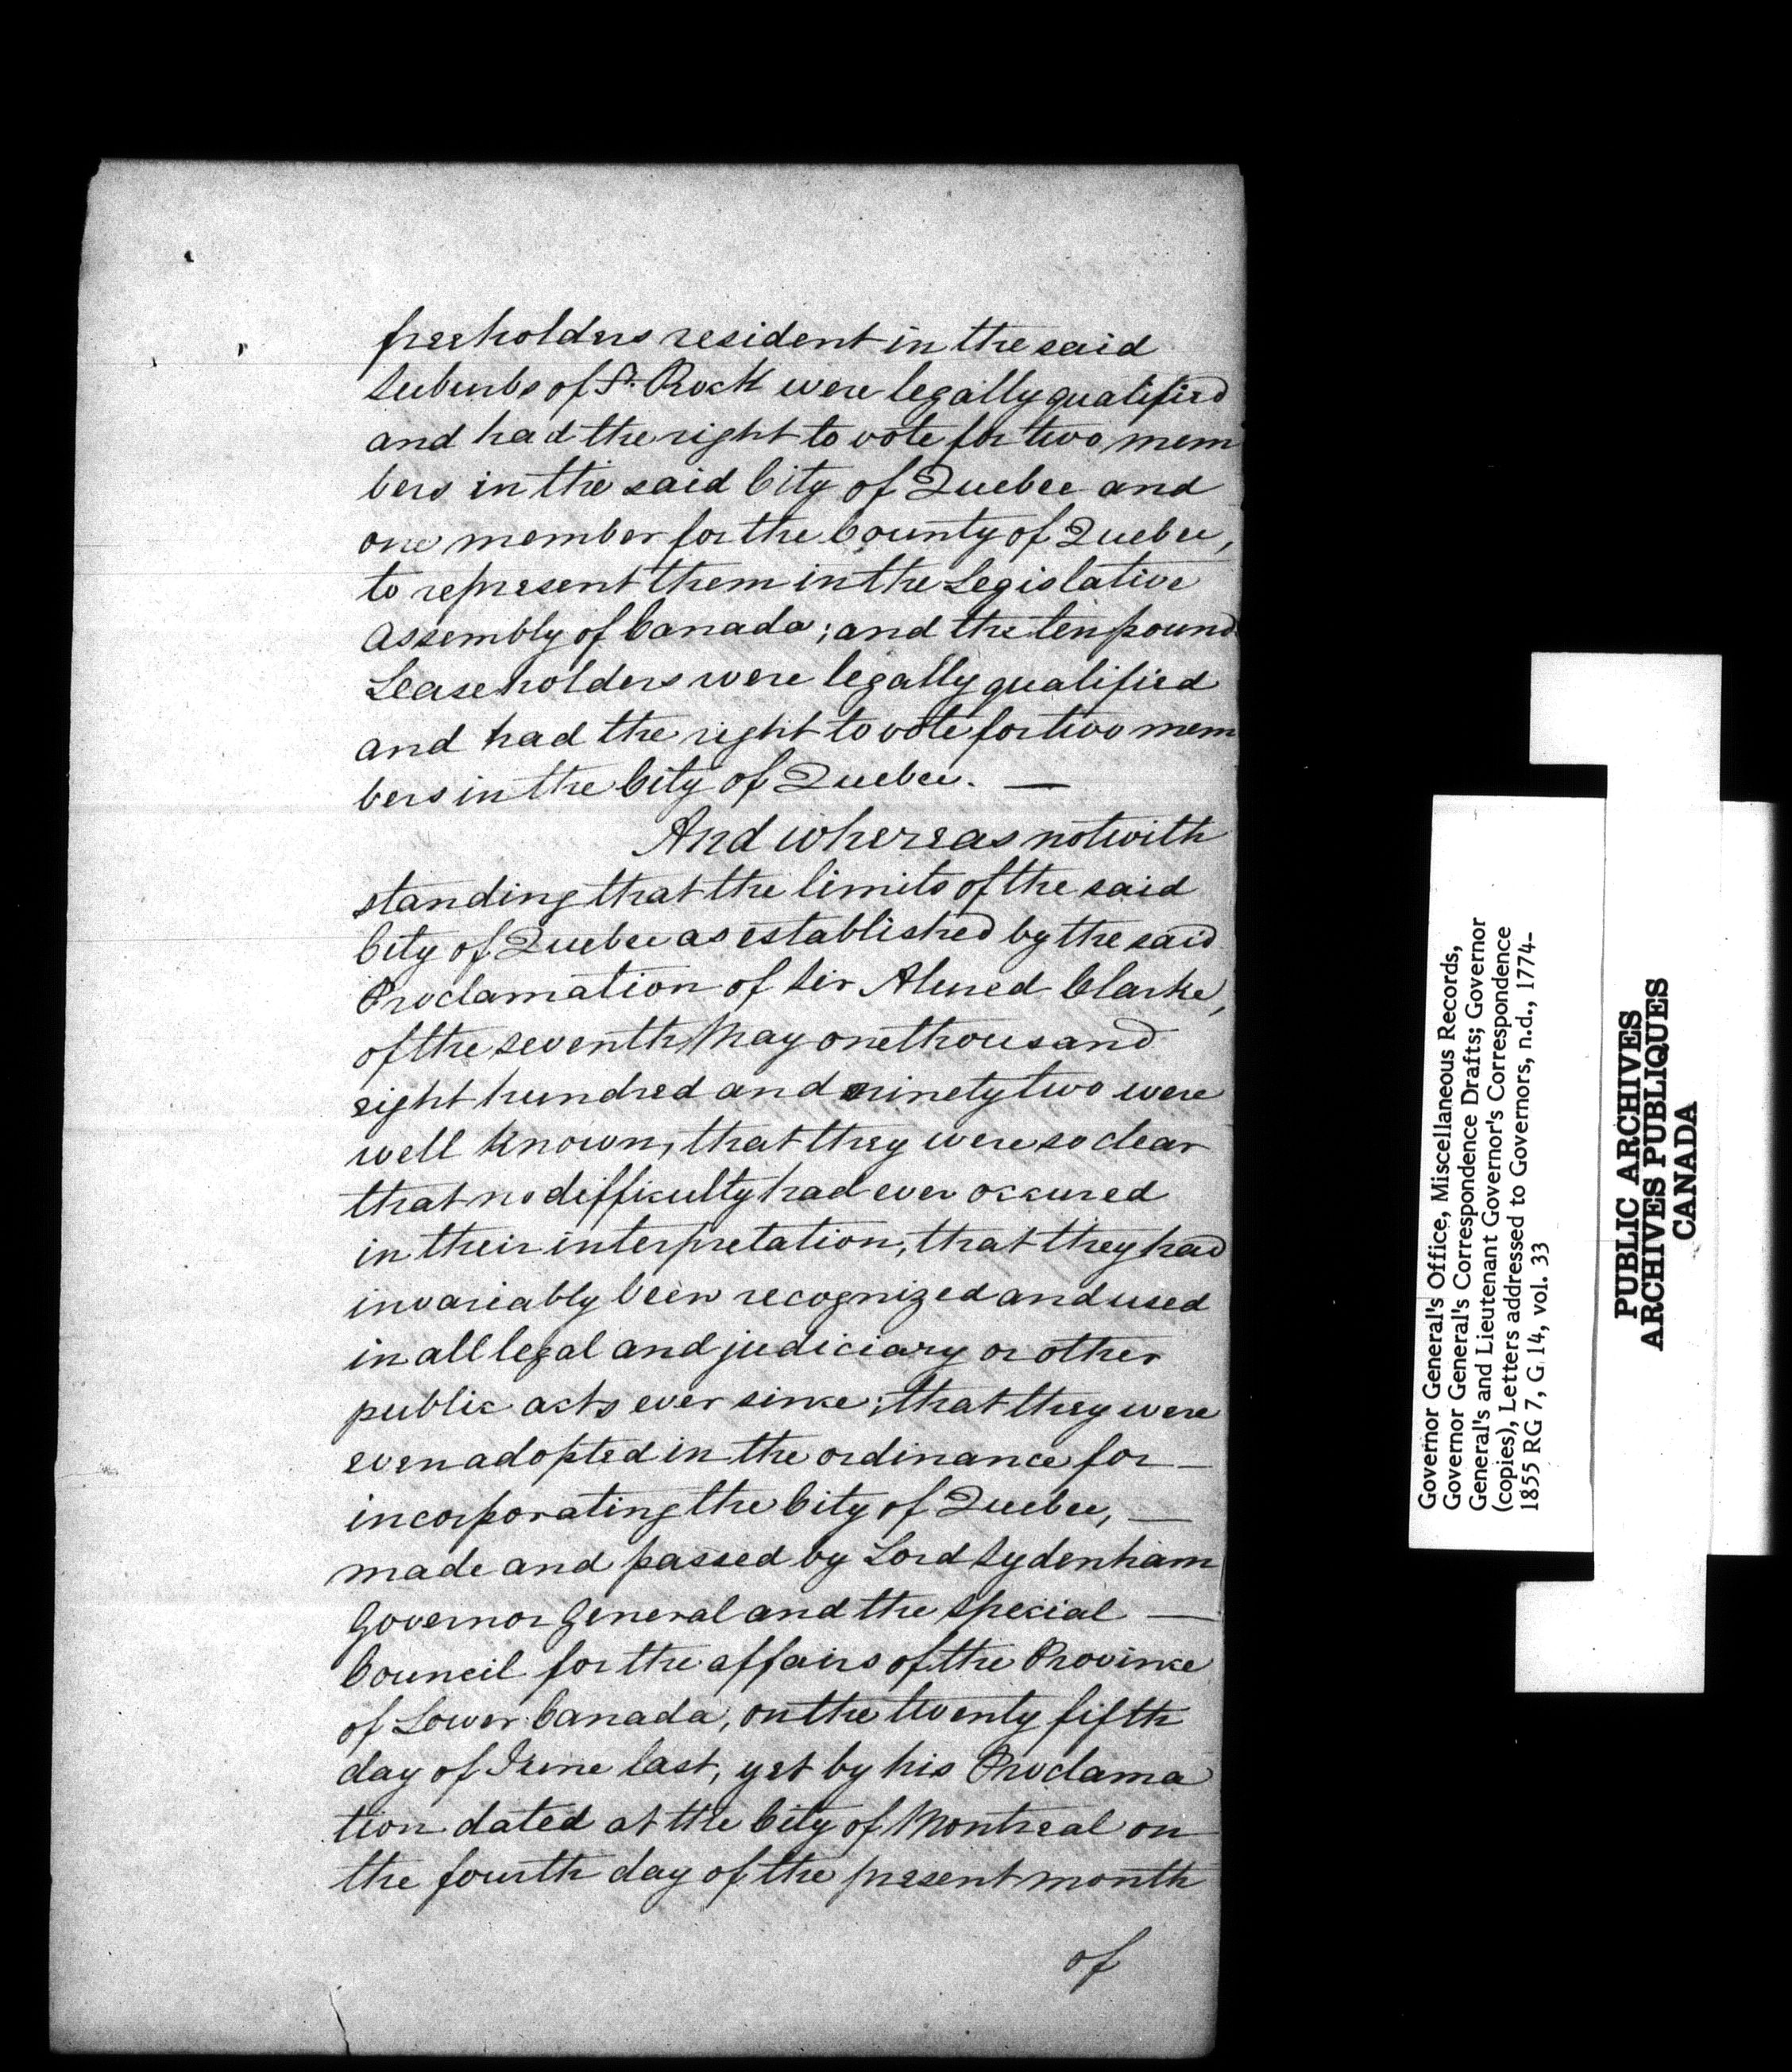 freeholders resident in the said
suburbs of St. Rock were legally qualified
and had the right to vote for two mem
bers in the said City of Quebec and
one member for the County of Quebec,
to represent them in the Legislative
Assembly of Canada; and the ten pound
Leaseholders were legally qualified
and had the right to vote for two mem
bers in the City of Quebec. —
And whereas notwith
standing that the limits of the said
City of Quebec as established by the said
Proclamation of Sir Alured Clarke,
of the seventh May one thousand
eight hundred and ninety two were
well known, that they were so clear
that no difficulty had ever occured
in their interpretation, that they had
invariably been recognized and used
in all legal and judiciary or other
public acts ever since; that they were
even adopted in the ordinance for —
incorporating the City of Quebec, —
made and passed by Lord Sydenham
Governor General and the Special —
Council for the affairs of the Province
of Lower Canada, on the twenty fifth
day of June last, yet by his Proclama
tion dated at the City of Montreal on
the fourth day of the present month
of
Governor General's Office, Miscellaneous Records,
Governor General's Correspondence Drafts; Governor
General's and Lieutenant Governor's Correspondence
(copies), Letters addressed to Governors, n.d., 1774-
1855 RG 7, G 14, vol. 33
PUBLIC ARCHIVES
ARCHIVES PUBLIQUES
CANADA